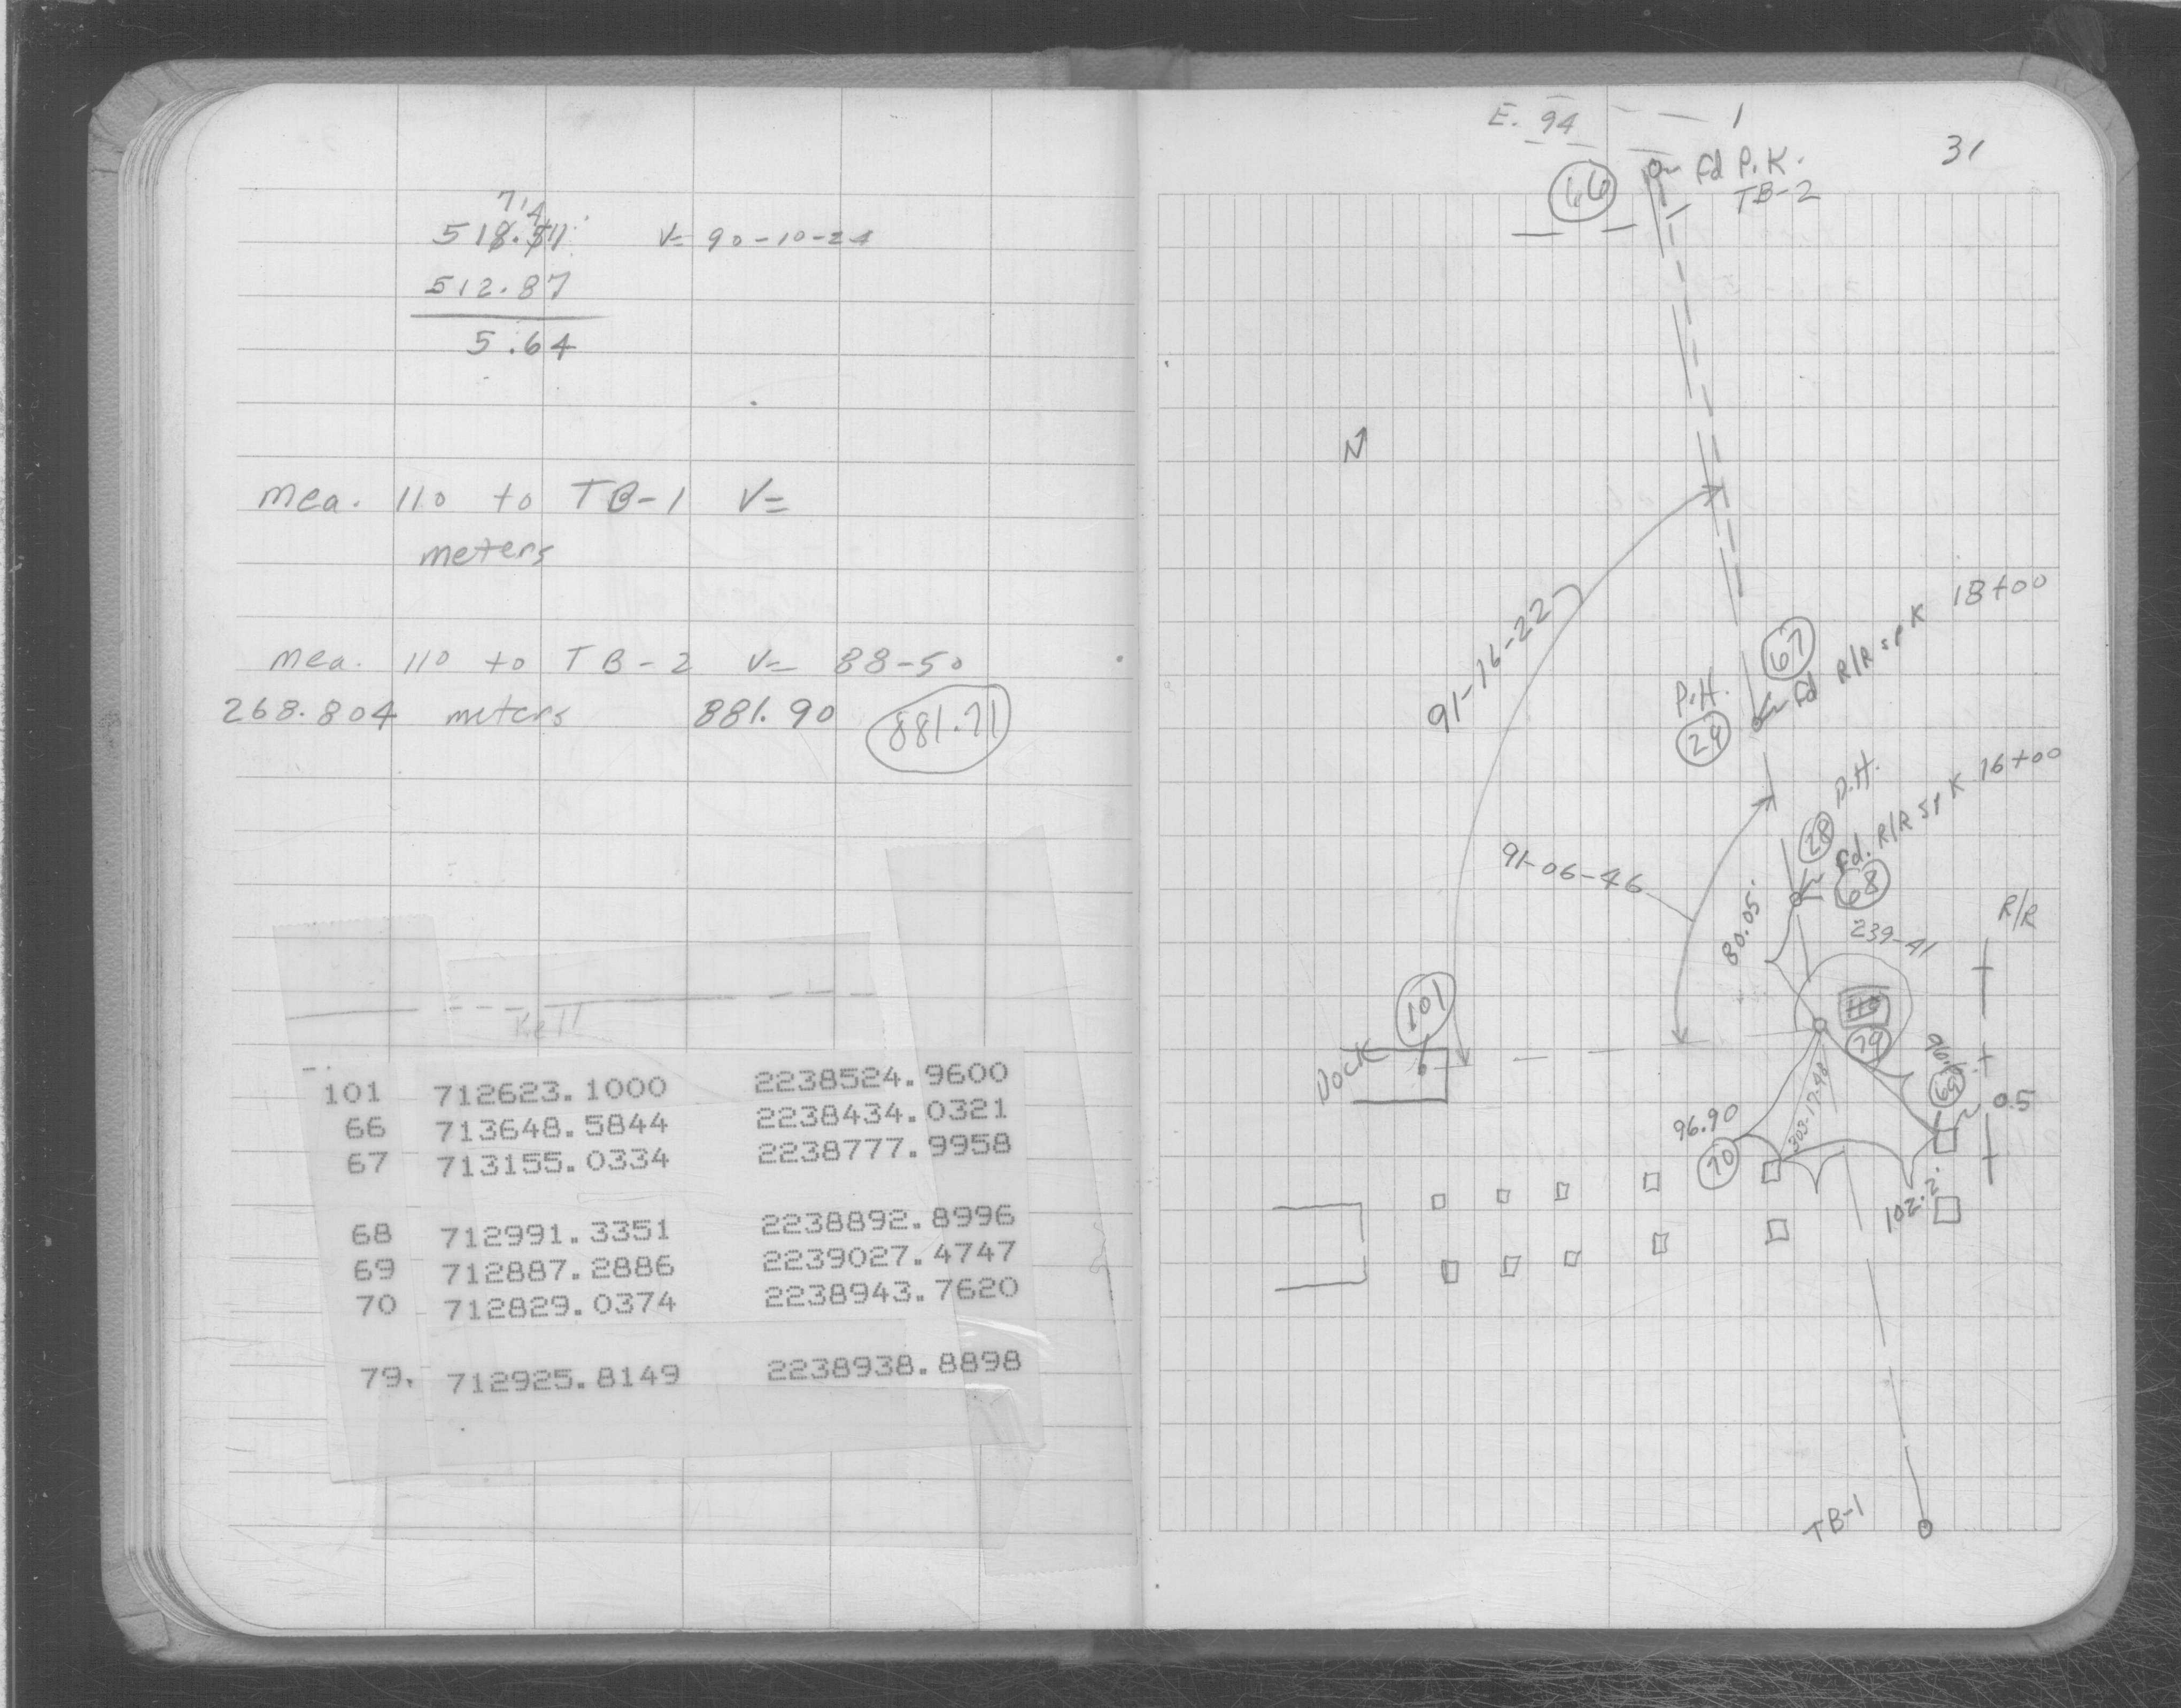 518.51
7 14
512.87
5.64
V= 90-10-24
mea. 110 to TB-1 V=
meters
mea. 110 to TB-2 V= 88-50
268.804 meters 881.90 881.71
Kell
101 712623.1000 2238524.9600
66 713648.5844 2238434.0321
67 713155.0334 2238777.9958
68 712991.3351 2238892.8996
69 712887.2886 2239027.4747
70 712829.0374 2238943.7620
79. 712925.8149 2238938.8898
E. 94
31
66 fd P.K.
TB-2
N
91-16-22
67
fd R/R spK 18+00
P.H.
29
P.H.
28
fd. R/R spK 16+00
68
91-06-46
80.05
239-41
R/R
101
Dock
110
79
69
0.5
96.90
303-17-48
70
102.2
TB-1